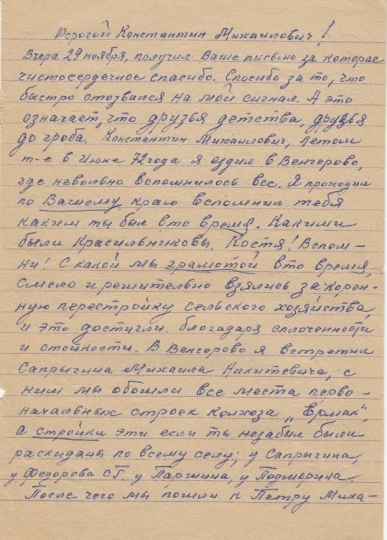 Дорогой Константин Михаилович!
Вчера 29 ноября, получил Ваше письмо за которое
чистосердечное спасибо. Спосибо за то, что
быстро отозвался на мой сигнал. А это
означает, что друзья детства, друзья
до гроба. Константин Михаилович, летом
т-е в Июне 72 года я ездил в Венгерово,
где невольно вспомнилось все. Я проходил
по Вашему краю вспомнил тебя
каким ты был в то время. Какими
были Красильниковы. Костя! Вспом-
ни! С какой мы грамотой в то время,
Смело и решительно взялись за корен-
ную перестройку сельского хозяйства,
и это достигли. благодаря сплоченности
и стойкости. В Венгерово я встретил
Сапрыгина Михаила Никитевича, с
ним мы обошли все места перво-
начальных строек колхоза „Ермак“,
А стройки эти если ты незабыл были
раскиданы по всему селу; у Сапрыгина,
у Федорова СГ. у Паршина, у Подморина.
После чего мы пошли к Петру Миха-